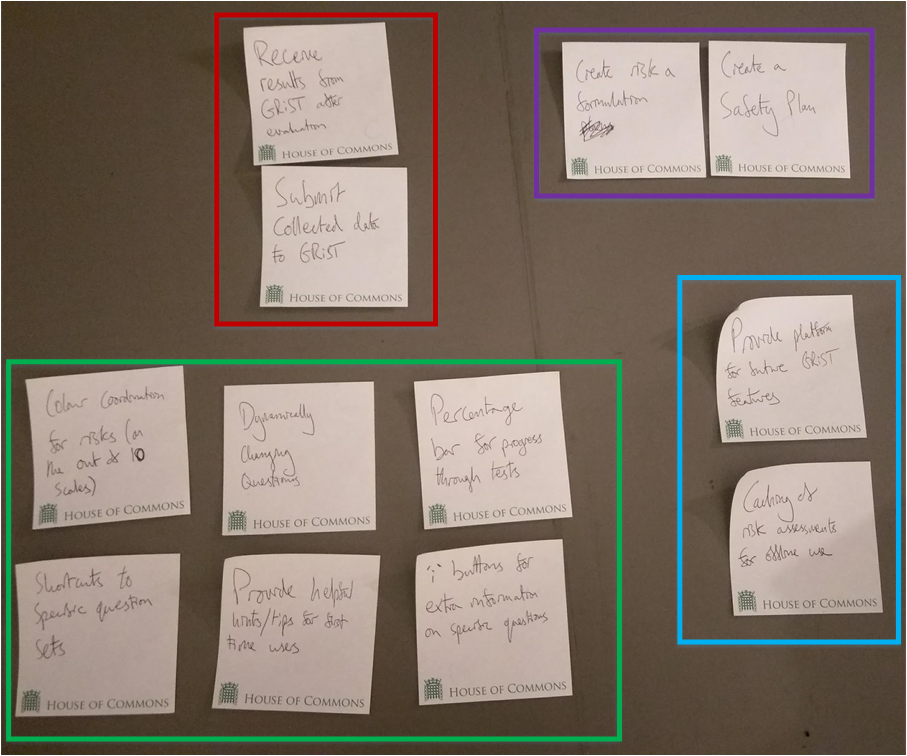 Receive
results from
GRiST after
evaluation
HOUSE OF COMMONS
Submit
Collected data
to GRiST
HOUSE OF COMMONS
Create risk a
formulation
HOUSE OF COMMONS
Create a
Safety Plan
HOUSE OF COMMONS
Provide platform
for future GRiST
features
HOUSE OF COMMONS
Caching of
risk assessments
for offline use
HOUSE OF COMMONS
Colour Coordination
for risks (on
the out of 10
scales)
HOUSE OF COMMONS
Dynamically
Changing
Questions
HOUSE OF COMMONS
Percentage
bar for progress
through tests
HOUSE OF COMMONS
Shortcuts to
specific question
sets
HOUSE OF COMMONS
Provide helpful
hints/tips for first
time uses
HOUSE OF COMMONS
'i' buttons for
extra information
on specific questions
HOUSE OF COMMONS